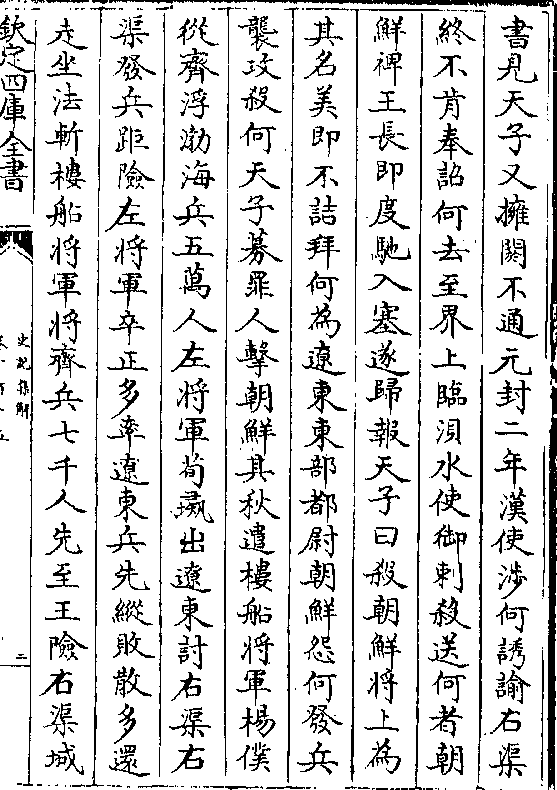 書見天子又擁閼不通元封二年漢使涉何誘諭右渠
終不肯奉詔何去至界上臨浿水使御刺殺送何者朝
鮮裨王長即度馳入塞遂歸報天子曰殺朝鮮將上為
其名美即不詰拜何為遼東東部都尉朝鮮怨何發兵
襲攻殺何天子募罪人擊朝鮮其秋遣樓船將軍楊僕
從齊浮渤海兵五萬人左將軍荀彘出遼東討右渠右
渠發兵距險左將軍卒正多率遼東兵先縱敗散多還
走坐法斬樓船將軍將齊兵七千人先至王險右渠城
欽定四庫全書
史記集解
二